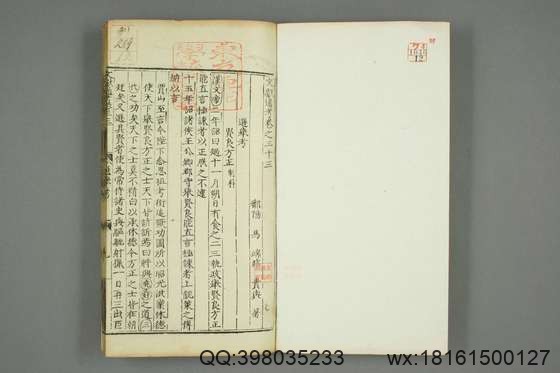 文獻通考卷之三十三
鄱陽 馬 端臨 貴與 著
選舉考
賢良方正 制科
漢文帝二年詔曰廼十一月朔日有食之二三執政舉賢良方正
能直言極諫者以正朕之不逮
十五年詔諸侯王公卿郡守舉賢良能直言極諫者上親策之傅
納以言
賈山至言今陛下念思祖考術追厥功圖所以昭光洪業休德
使天下舉賢良方正之士天下皆訢訢焉曰將興堯舜之道三
代之功矣天下之士莫不精白以承休德今方正之士皆在朝
廷矣又選其賢者使為常侍諸吏與驅馳射獵一日再三出臣
QQ:398035233
wx:18161500127